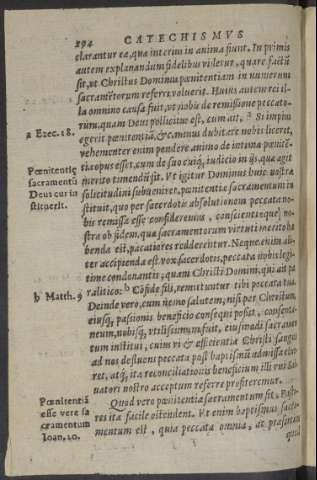 294 CATECHISMVS
clarantur ea, qua interius in anima fiunt. In primis
autem explanandum fidelibus videtur, quare factũ
sit, vt Christus Dominus pœnitentiam in numerum
sacramẽtorum referre voluerit. Huius autem rei il
la omnino causa fuit, vt nobis de remissione peccato-
rum, quam Deus pollicitus est, cum ait, a Si impius
a Ezec. 18.
egerit pœnitentiã, &c. minus dubitare nobis liceret,
vehementer enim pendere animo de intima pœnitẽ-
tia opus esset, cum de suo cuiq, iudicio in ijs, qua agit
Pœnitentiã
sacramentũ
Deus cur in
stituerit.
merito timendũ sit. Vt igitur Dominus huic nostra
solicitudini subueniret, pœnitentia sacramentum in
stituit, quo per sacerdotis absolutionem peccata no-
bis remissa esse confideremus, conscientiaeque no-
stra ob fidem, qua sacramentorum virtuti merito ha
benda est, pacatiores redderentur. Neque enim ali-
ter accipienda est vox sacerdotis, peccata nobis legi-
time condonantis, quam Christi Domini, qui ait pa
ralitico: b Cõfide fili, remittuntur tibi peccata tua.
b Matth. 9
Deinde vero, cum nemo salutem, nisi per Christum,
eiusq, passionis beneficio consequi possit, consenta-
neum, nobisq, vtilissimum fuit, eiusmodi sacramen
tum institui, cuius vi & efficientia Christi sanguis
ad nos defluens peccata post baptismũ admissa elue
ret, atq, ita reconciliationis beneficium illi vni Sal-
uatori nostro acceptum referre profiteremur.
Quod vero pœnitentia sacramentum sit, Pasto-
Pœnitentiã
esse vere sa
cramentum
Ioan. 20.
res ita facile ostendent. Vt enim baptismus sacra-
mentum est, quia peccata omnia, ac præsertim